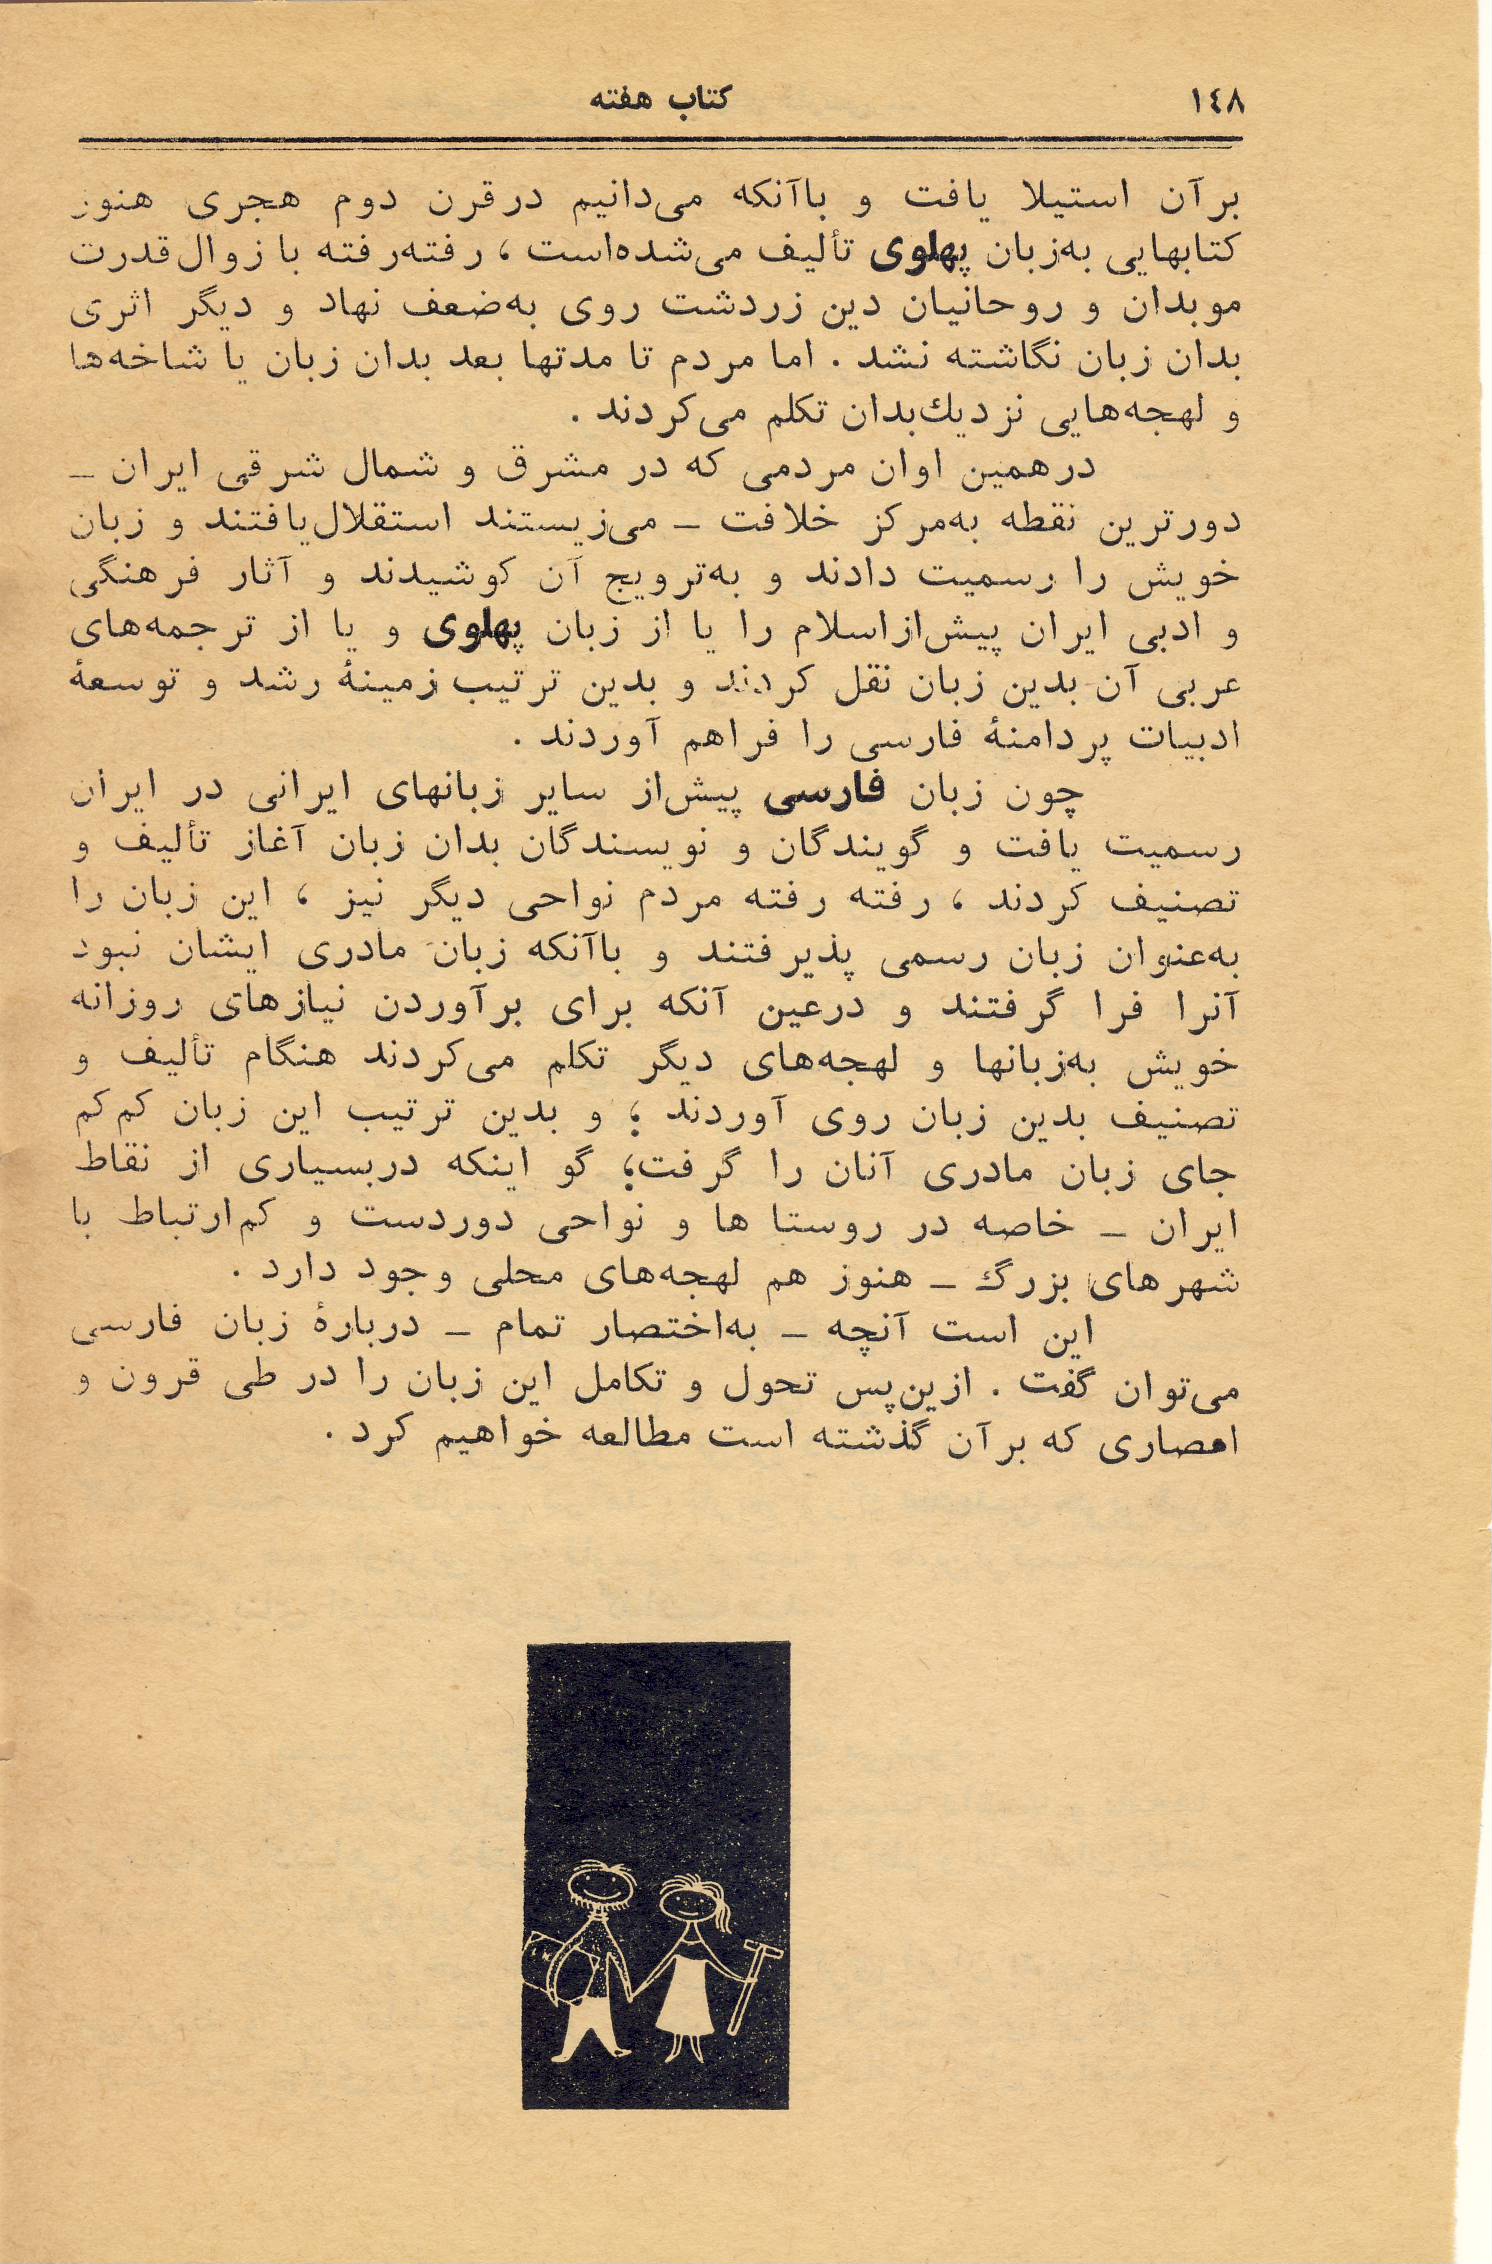 ١٤٨
کتاب هفته
برآن استیلا یافت و باآنکه می‌دانیم درقرن دوم هجری هنوز
کتابهایی به‌زبان پهلوی تألیف می‌شده‌است ، رفته‌رفته با زوال قدرت
موبدان و روحانیان دین زردشت روی به‌ضعف نهاد و دیگر اثری
بدان زبان نگاشته نشد . اما مردم تا مدتها بعد بدان زبان یا شاخه‌ها
و لهجه‌هایی نزدیك‌بدان تکلم می‌کردند .
درهمین اوان مردمی که در مشرق و شمال شرقی ایران ـ
دورترین نقطه به‌مرکز خلافت ـ می‌زیستند استقلال‌یافتند و زبان
خویش را رسمیت دادند و به‌ترویج آن کوشیدند و آثار فرهنگی
و ادبی ایران پیش‌ازاسلام را یا از زبان پهلوی و یا از ترجمه‌های
عربی آن بدین زبان نقل کردند و بدین ترتیب زمینهٔ رشد و توسعهٔ
ادبیات پردامنهٔ فارسی را فراهم آوردند .
چون زبان فارسی پیش‌از سایر زبانهای ایرانی در ایران
رسمیت یافت و گویندگان و نویسندگان بدان زبان آغاز تألیف و
تصنیف کردند ، رفته رفته مردم نواحی دیگر نیز ، این زبان را
به‌عنوان زبان رسمی پذیرفتند و باآنکه زبان مادری ایشان نبود
آنرا فرا گرفتند و درعین آنکه برای برآوردن نیازهای روزانه
خویش به‌زبانها و لهجه‌های دیگر تکلم می‌کردند هنگام تألیف و
تصنیف بدین زبان روی آوردند ؛ و بدین ترتیب این زبان کم‌کم
جای زبان مادری آنان را گرفت؛ گو اینکه دربسیاری از نقاط
ایران ـ خاصه در روستا ها و نواحی دوردست و کم‌ارتباط با
شهرهای بزرگ ـ هنوز هم لهجه‌های محلی وجود دارد .
این است آنچه ـ به‌اختصار تمام ـ دربارهٔ زبان فارسی
می‌توان گفت . ازین‌پس تحول و تکامل این زبان را در طی قرون و
اعصاری که برآن گذشته است مطالعه خواهیم کرد .